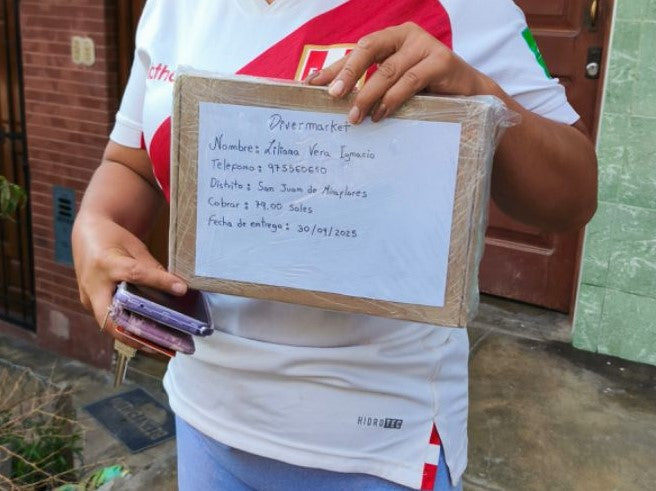 Divermarket
Nombre: Liliana Vera Ignacio
Telefono: 973560650
Distrito: San Juan de Miraflores
Cobrar: 79.00 Soles
Fecha de entrega: 30/09/2025
HIDROTEC